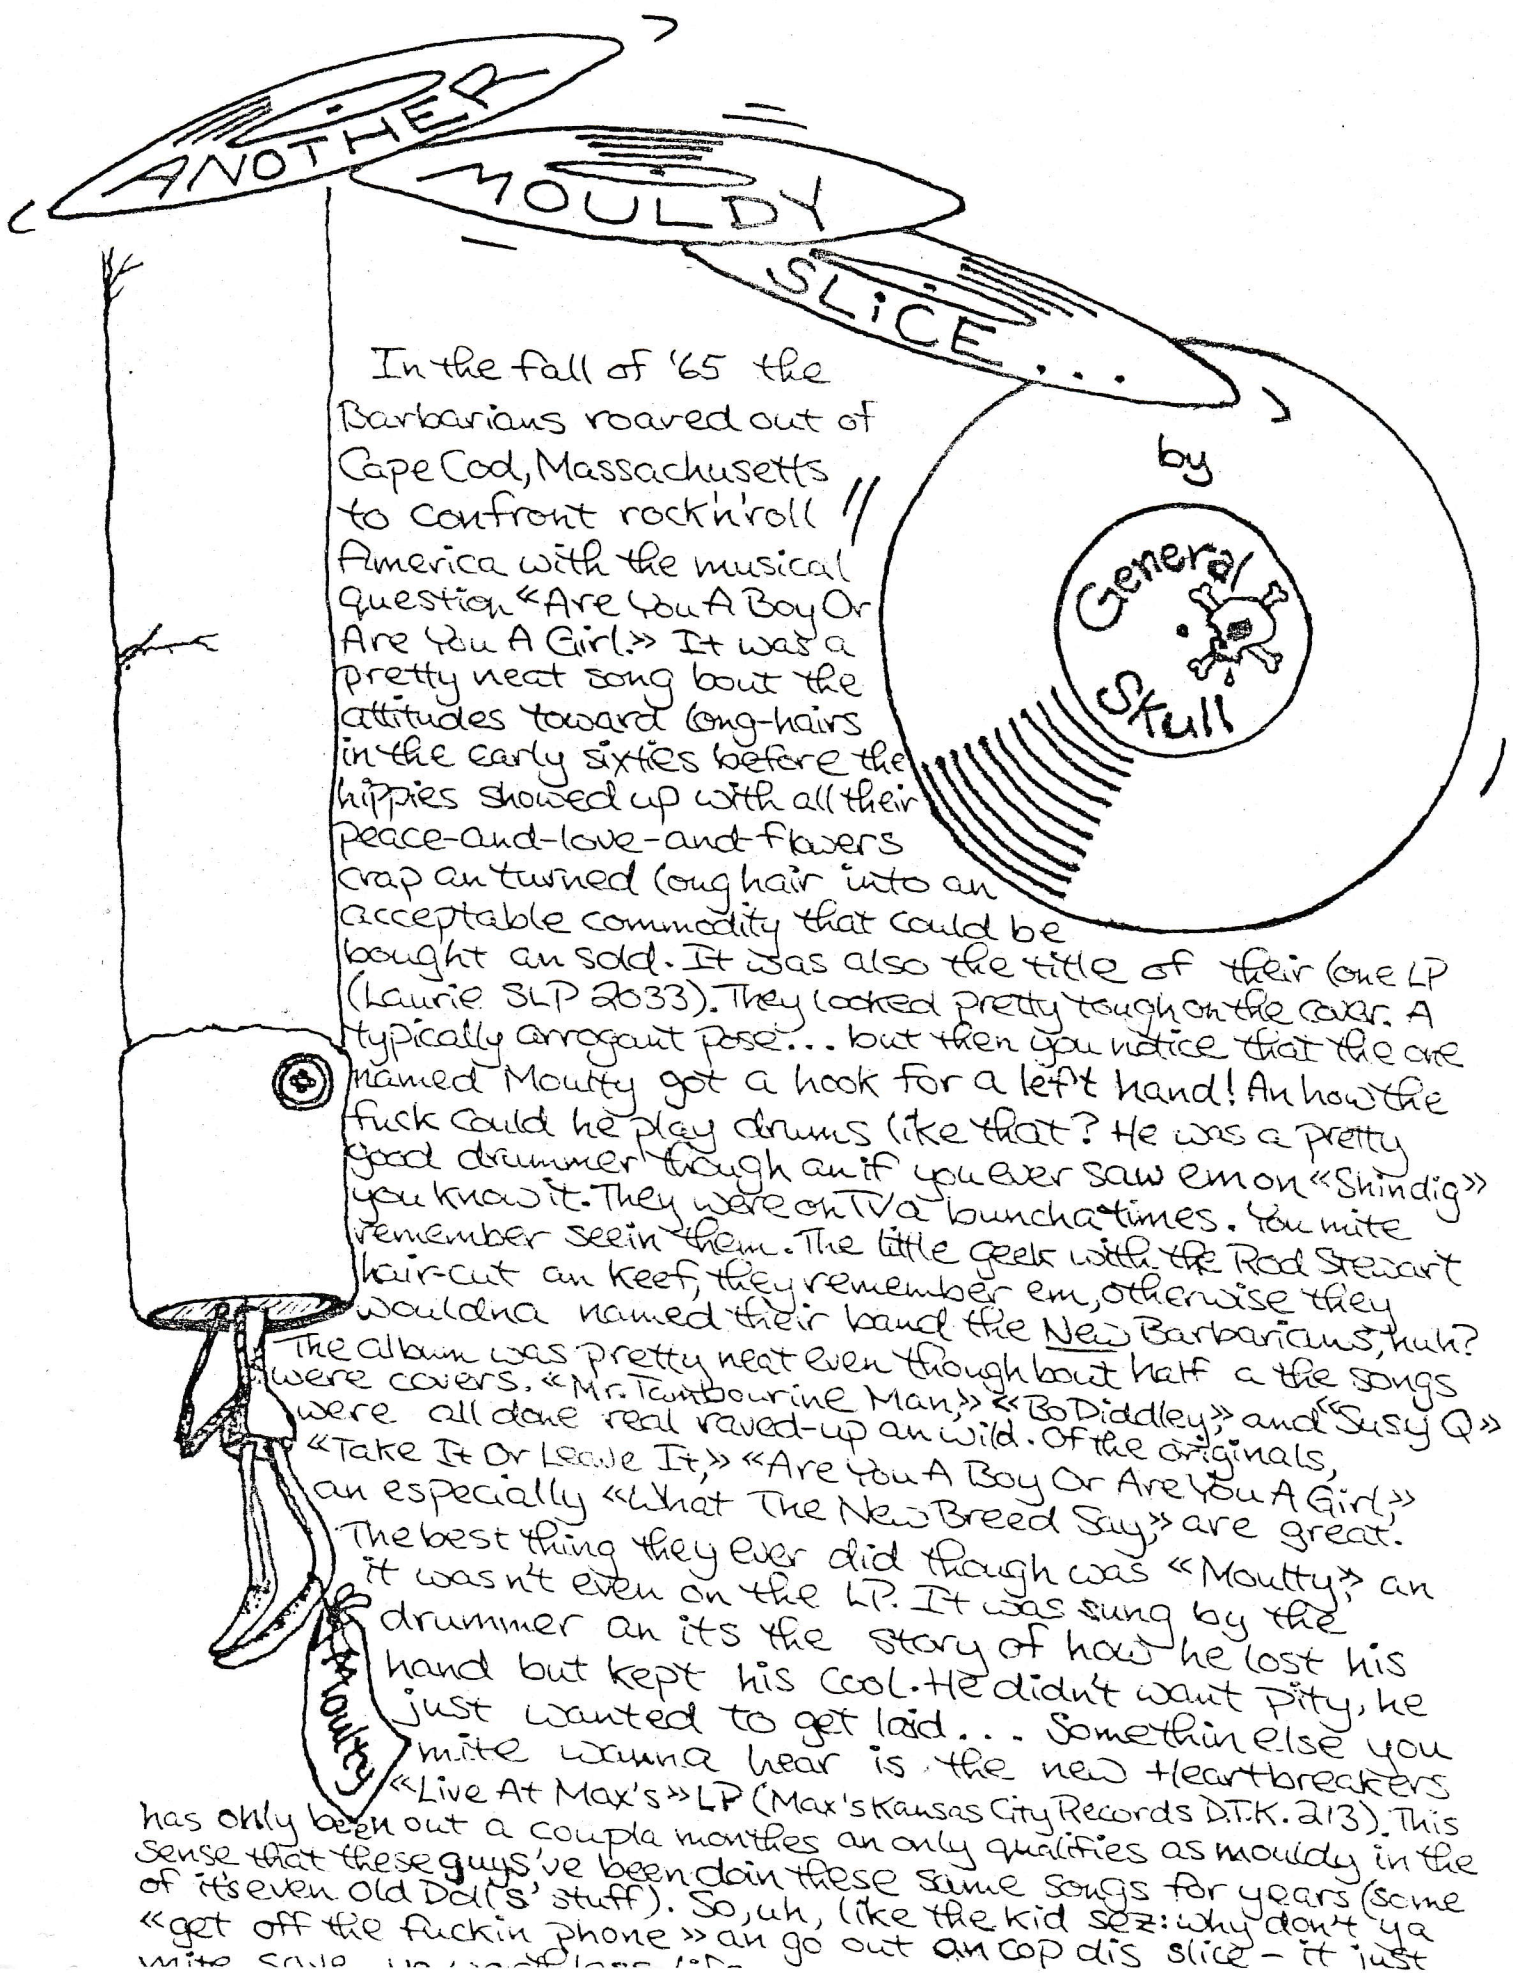 ANOTHER
MOULDY
SLiCE...
by
General
Skull
In the fall of '65 the
Barbarians roared out of
Cape Cod, Massachusetts
to confront rock'n'roll
America with the musical
question «Are You A Boy Or
Are You A Girl.» It was a
pretty neat song bout the
attitudes toward long-hairs
in the early sixties before the
hippies showed up with all their
peace-and-love-and-flowers
crap an turned long hair into an
acceptable commodity that could be
bought an sold. It was also the title of their lone LP
(Laurie SLP 2033). They looked pretty tough on the cover. A
typically arrogant pose... but then you notice that the one
named Moulty got a hook for a left hand! An how the
fuck could he play drums like that? He was a pretty
good drummer though an if you ever saw em on «Shindig»
you know it. They were on TV a buncha times. You mite
remember seein them. The little geek with the Rod Stewart
hair-cut an Keef, they remember em, otherwise they
wouldna named their band the New Barbarians, huh?
The album was pretty neat even though bout half a the songs
were covers. «Mr. Tambourine Man,» «Bo Diddley,» and «Susy Q»
were all done real raved-up an wild. Of the originals,
«Take It Or Leave It,» «Are You A Boy Or Are You A Girl,»
an especially «What The New Breed Say,» are great.
The best thing they ever did though was «Moulty,» an
it wasn't even on the LP. It was sung by the
drummer an its the story of how he lost his
hand but kept his cool. He didn't want pity, he
just wanted to get laid... Somethin else you
mite wanna hear is the new Heartbreakers
«Live At Max's» LP (Max's Kansas City Records D.T.K. 213). This
has only been out a coupla monthes an only qualifies as mouldy in the
sense that these guys've been doin these same songs for years (some
of it's even old Doll's' stuff). So, uh, like the kid sez: why don't ya
«get off the fuckin phone» an go out an cop dis slice - it just
mite save
Moulty